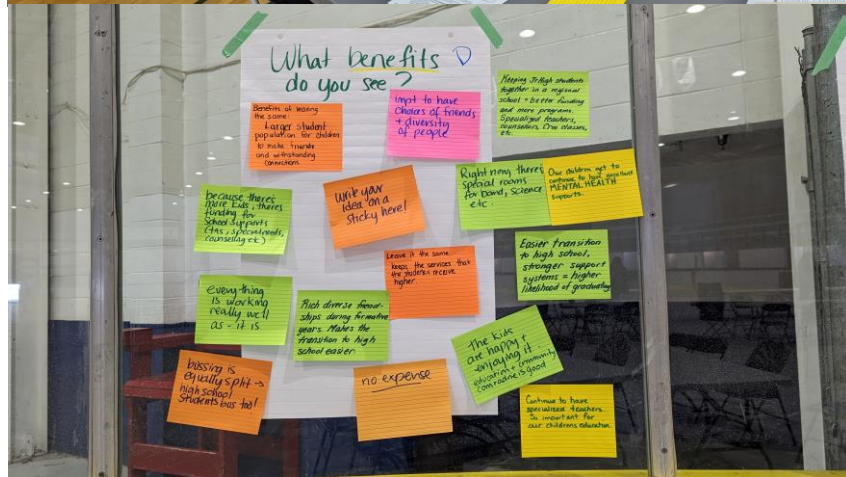 What benefits
do you see?
D
Benefits of leaving
the same:
Larger student
population for children
to make friends
and withstanding
connections
impt to have
choices of friends
+ diversity
of people
Keeping Jr High students
together in a regional
school = better funding
and more programs.
Specialized teachers,
counsellors, classes,
etc.
because there's
more kids, there's
funding for
school supports
(TAs, special needs,
counseling etc)
Write your
idea on a
sticky here!
Right now, there's
special rooms
for band, science
etc.
Our children get to
continue to have excellent
MENTAL HEALTH
supports.
Leave it the same
keeps the services that
the students receive
higher.
Easier transition
to high school,
stronger support
systems = higher
likelihood of graduating
everything
is working
really well
as-it is
Rich diverse friend-
ships during formative
years. Makes the
transition to high
school easier.
The kids
are happy +
enjoying it.
education + community
comradrie is good
bussing is
equally split →
high school
students bus too!
no expense
Continue to have
specialized teachers.
So important for
our childrens education.